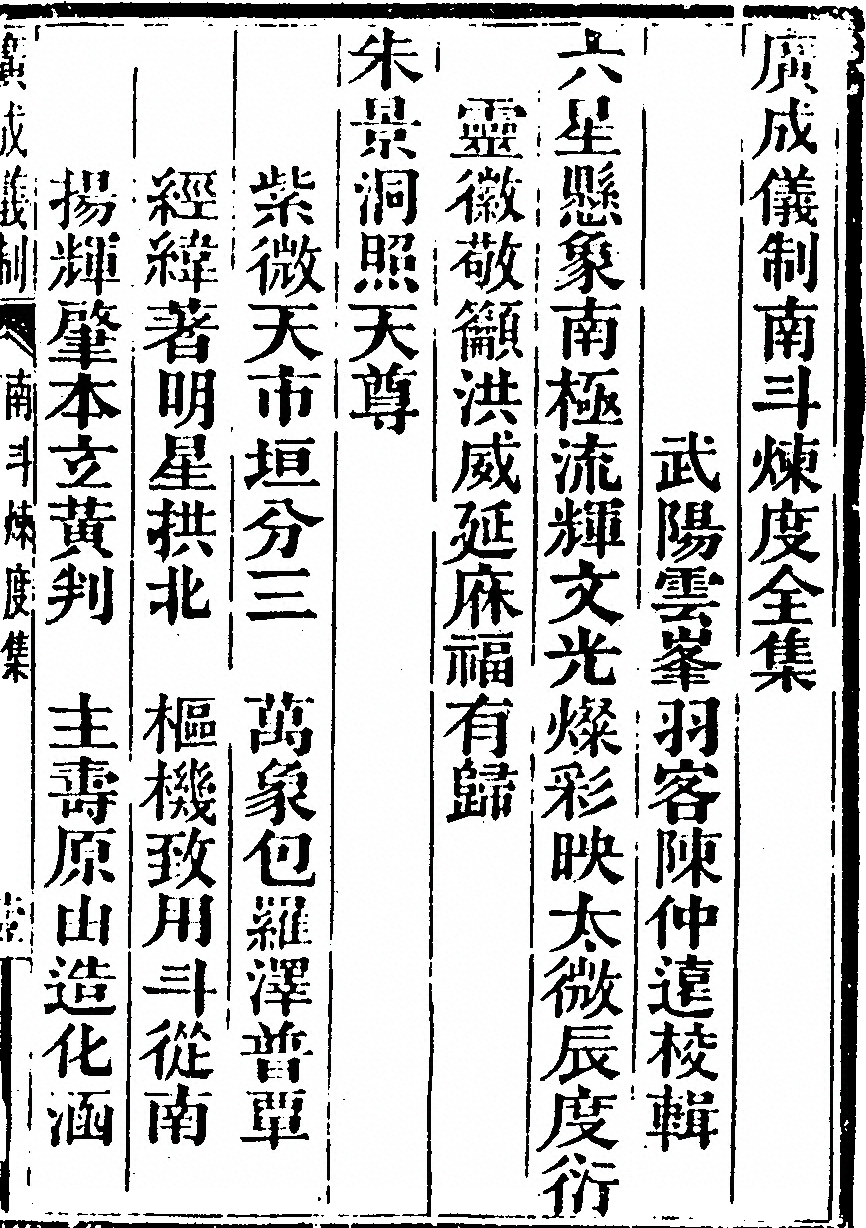 廣成儀制南斗煉度全集
武陽雲峯羽客陳仲遠校輯
六星懸象南極流輝文光燦彩映太微辰度衍
靈徽敬籲洪威延庥福有歸
朱景洞照天尊
紫微天市垣分三　萬象包羅澤普覃
經緯著明星拱北　樞機致用斗從南
揚輝肇本立黃判　主壽原由造化涵
廣成儀制　南斗煉度集　壹